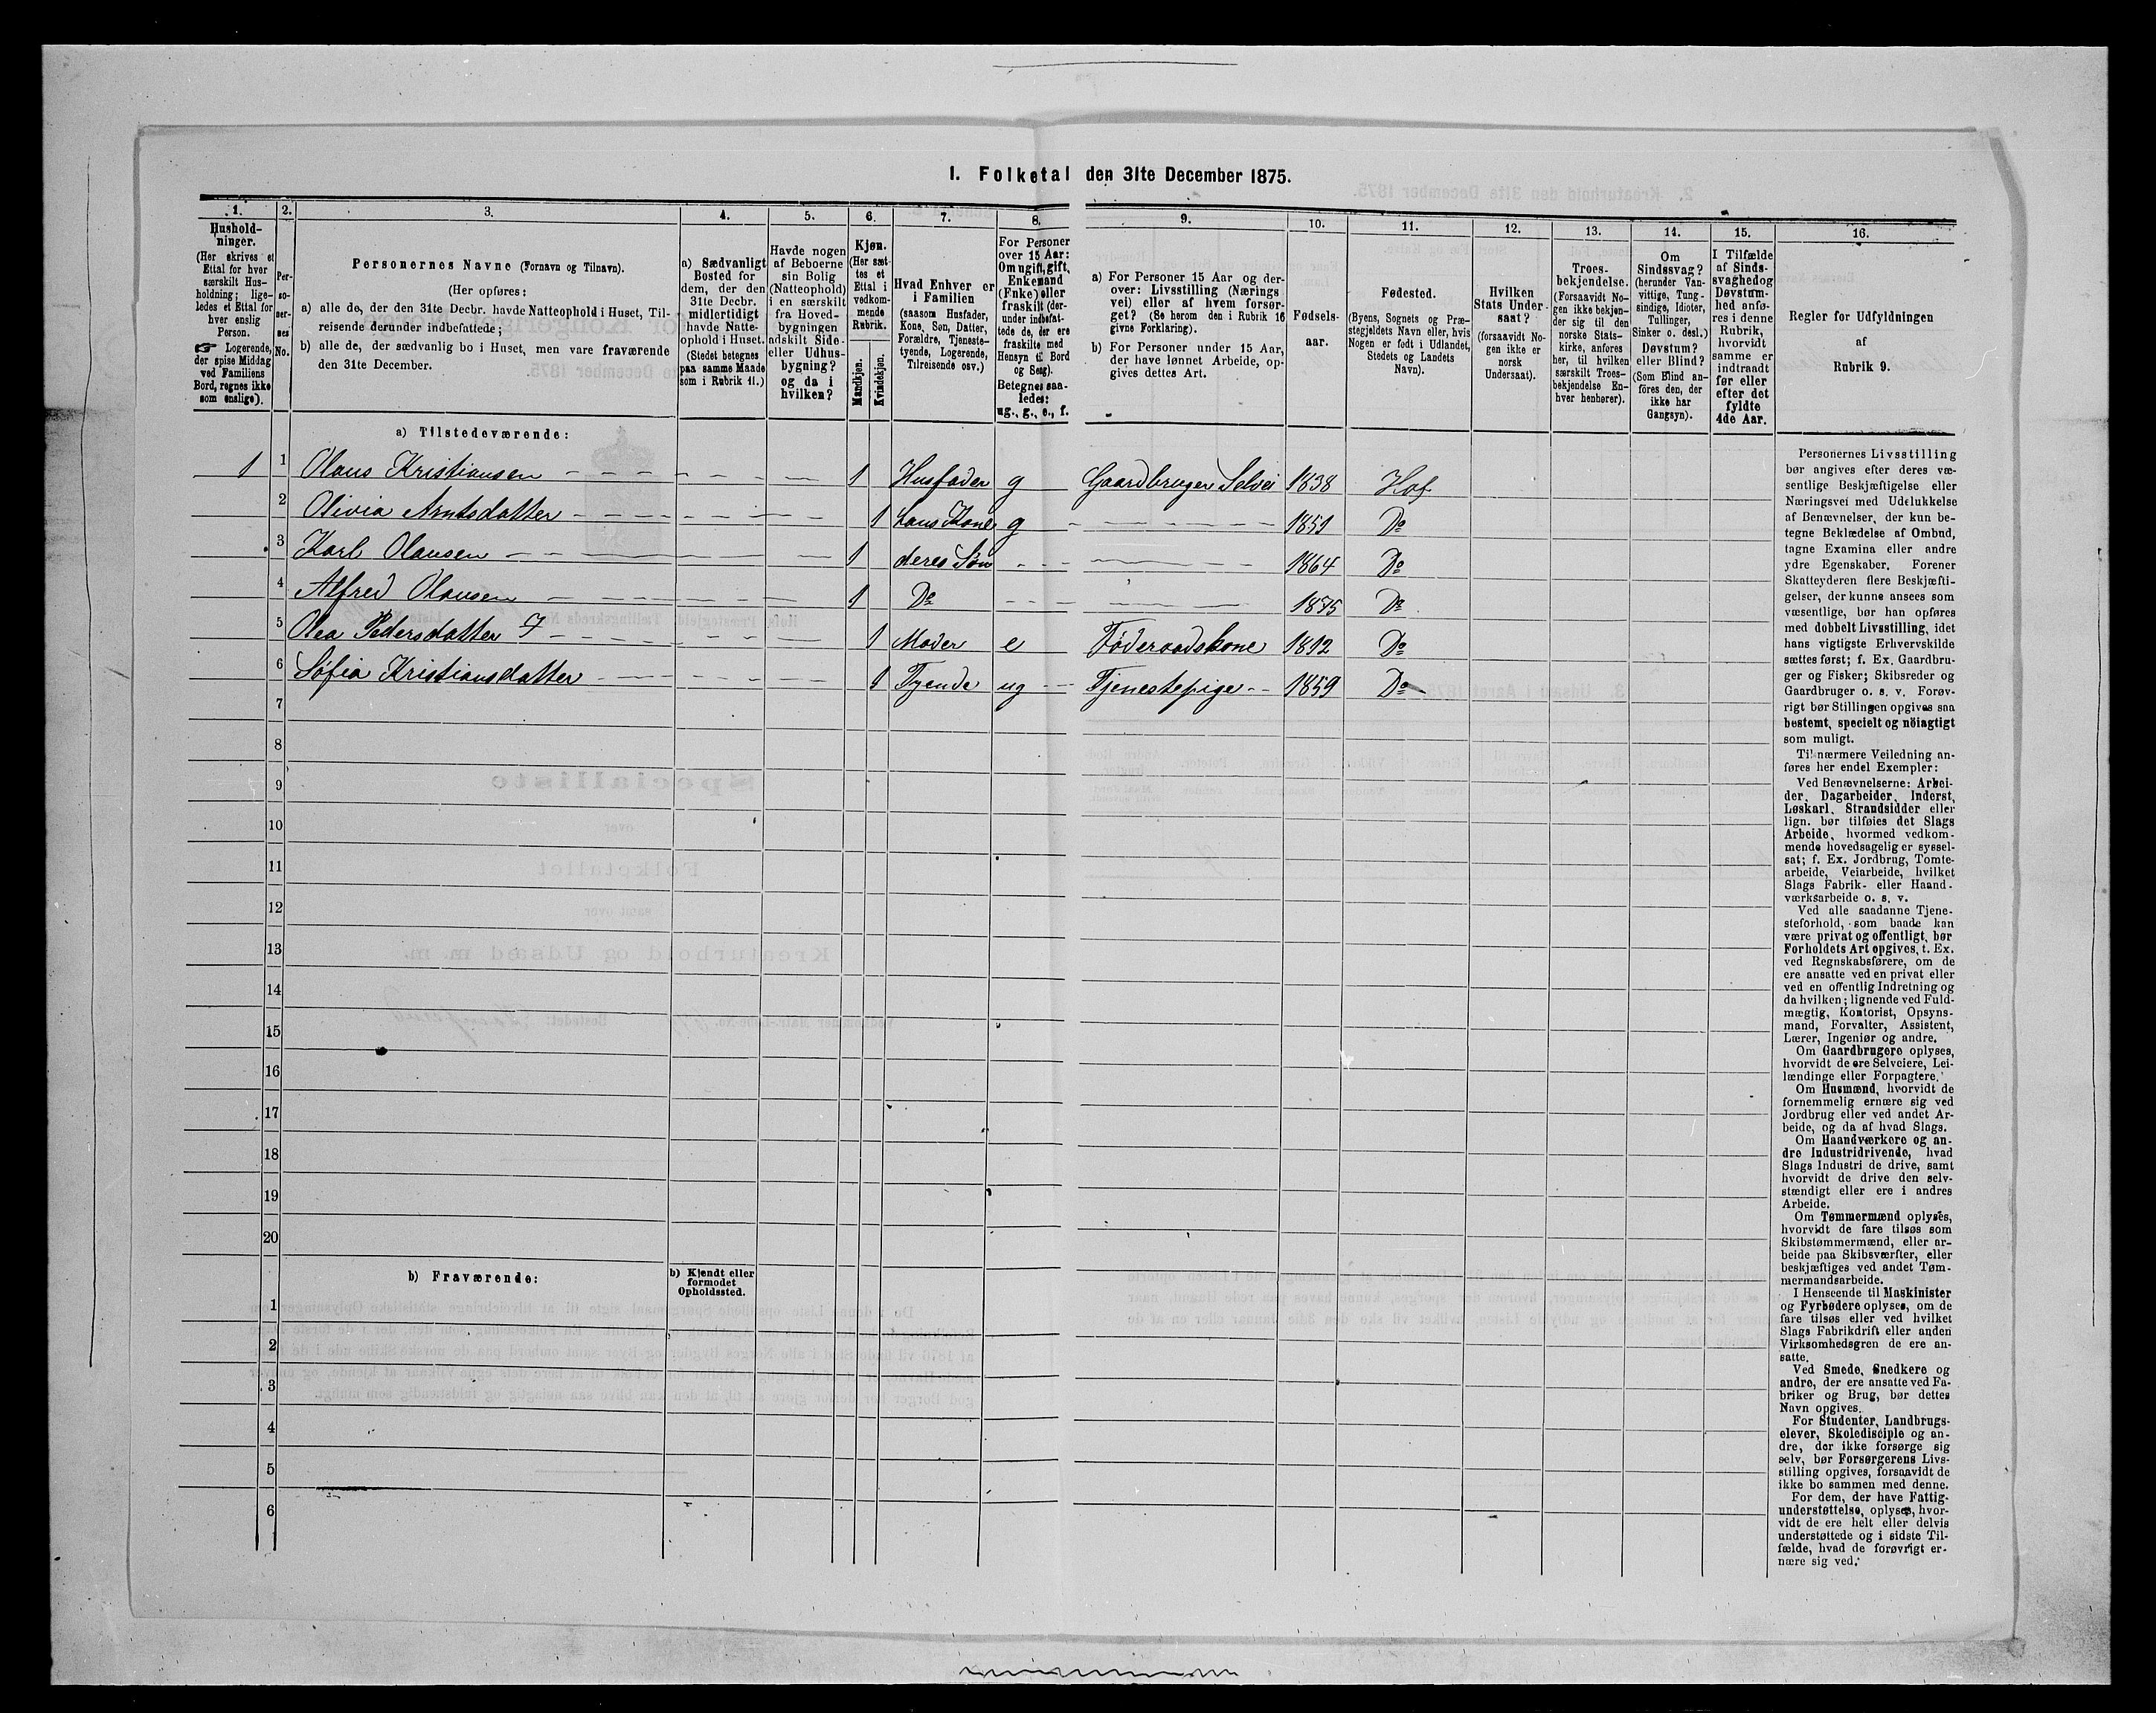 1. Folketal den 31te December 1875.
1.
Hushold-
ninger.
(Her skrives et
Ettal for hver
særskilt Hus-
holdning; lige-
ledes et Ettal for
hver enslig
Person.
☞ Logerende,
der spise Middag
ved Familiens
Bord, regnes ikke
som enslige).
2.
Per-
so-
ner-
nes
No.
3.
Personernes Navne (Fornavn og Tilnavn).
(Her opføres:
a) alle de, der den 31te Decbr. havde Natteophold i Huset, Til-
reisende derunder indbefattede;
b) alle de, der sædvanlig bo i Huset, men vare fraværende
den 31te December.
4.
a) Sædvanligt
Bosted for
dem, der den
31te Decbr.
midlertidigt
havde Natte-
ophold i Huset.
(Stedet betegnes
paa samme Maade
som i Rubrik 11.)
5.
Havde nogen
af Beboerne
sin Bolig
(Natteophold)
i en særskilt
fra Hoved-
bygningen
adskilt Side-
eller Udhus-
bygning?
og da i
hvilken?
6.
Kjøn.
(Her sæt-
tes et
Ettal i
vedkom-
mende
Rubrik.
Mandkjøn.
Kvindekjøn.
7.
Hvad Enhver er
i Familien
(saasom Husfader,
Kone, Søn, Datter,
Forældre, Tjeneste-
tyende, Logerende,
Tilreisende osv.)
8.
For Personer
over 15 Aar:
Om ugift, gift,
Enkemand
(Enke) eller
fraskilt (der-
under indbefat-
tede de, der ere
fraskilte med
Hensyn til Bord
og Seng).
Betegnes saa-
ledes:
ug., g., e., f.
9.
a) For Personer 15 Aar og der-
over: Livsstilling (Nærings
vei) eller af hvem forsør-
get? (Se herom den i Rubrik 16
givne Forklaring).
b) For Personer under 15 Aar,
der have lønnet Arbeide, op-
gives dettes Art.
10.
Fødsels-
aar.
11.
Fødested.
(Byens, Sognets og Præ-
stegjeldets Navn eller, hvis
Nogen er født i Udlandet,
Stedets og Landets
Navn).
12.
Hvilken
Stats Under-
saat?
(forsaavidt No-
gen ikke er
norsk
Undersaat).
13.
Troes-
bekjendelse.
(Forsaavidt No-
gen ikke bekjen-
der sig til den
norske Stats-
kirke, anføres
her, til hvilken
særskilt Troes-
bekjendelse En-
hver henhører).
14.
Om
Sindssvag?
(herunder Van-
vittige, Tung-
sindige, Idioter,
Tullinger,
Sinker o. desl.)
Døvstum?
eller Blind?
(Som Blind an-
føres den, der
ikke har
Gangsyn).
15.
I Tilfælde
af Sinds-
svaghed og
Døvstum-
hed anfø-
res i denne
Rubrik,
hvorvidt
samme er
indtraadt
før eller
efter det
fyldte
4de Aar.
16.
Regler for Udfyldningen
af
Rubrik 9.
a) Tilstedeværende:
1 1 Olaus Kristiansen 1 Husfader g Gaardbruger Selvei 1838 Hof
2 Olivia Arntsdatter 1 hans Kone g 1851 Do
3 Karl Olausen 1 deres Søn 1864 Do
4 Alfred Olausen 1 Do 1875 Do
5 Olea Pedersdatter 1 Moder e Føderaadskone 1812 Do
6 Søfia Kristiansdatter 1 Tyende ug Tjenestepige 1859 Do
7
8
9
10
11
12
13
14
15
16
17
18
19
20
b) Fraværende:
b) Kjendt eller
formodet
Opholdssted.
1
2
3
4
5
6
Personernes Livsstilling
bør angives efter deres væ-
sentlige Beskjæftigelse eller
Næringsvei med Udelukkelse
af Benævnelser, der kun be-
tegne Beklædelse af Ombud,
tagne Examina eller andre
ydre Egenskaber. Forener
Skatteyderen flere Beskjæfti-
gelser, der kunne ansees som
væsentlige, bør han opføres
med dobbelt Livsstilling, idet
hans vigtigste Erhvervskilde
sættes først; f. Ex. Gaardbru-
ger og Fisker; Skibsreder og
Gaardbruger o. s. v. Forøv-
rigt bør Stillingen opgives saa
bestemt, specielt og nöiagtigt
som muligt.
Til nærmere Veiledning an-
føres her endel Exempler:
Ved Benævnelserne: Arbei-
der, Dagarbeider, Inderst,
Løskarl, Strandsidder eller
lign. bør tilføies det Slags
Arbeide, hvormed vedkom-
mende hovedsagelig er syssel-
sat; f. Ex. Jordbrug, Tomte-
arbeide, Veiarbeide, hvilket
Slags Fabrik- eller Haand-
værksarbeide o. s. v.
Ved alle saadanne Tjene-
steforhold, som baade kan
være privat og offentligt, bør
Forholdets Art opgives, t. Ex.
ved Regnskabsførere, om de
ere ansatte ved en privat eller
ved en offentlig Indretning og
da hvilken; lignende ved Fuld-
mægtig, Kontorist, Opsyns-
mand, Forvalter, Assistent,
Lærer, Ingeniør og andre.
Om Gaardbrugere oplyses,
hvorvidt de ere Selveiere, Lei-
lændinge eller Forpagtere.
Om Husmænd, hvorvidt de
fornemmelig ernære sig ved
Jordbrug eller ved andet Ar-
beide, og da af hvad Slags.
Om Haandværkere og an-
dre Industridrivende, hvad
Slags Industri de drive, samt
hvorvidt de drive den selv-
stændigt eller ere i andres
Arbeide.
Om Tømmermænd oplyses,
hvorvidt de fare tilsøs som
Skibstømmermænd, eller ar-
beide paa Skibsværfter, eller
beskjæftiges ved andet Tøm-
mermandsarbeide.
I Henseende til Maskinister
og Fyrbødere oplyses, om de
fare tilsøs eller ved hvilket
Slags Fabrikdrift eller anden
Virksomhedsgren de ere an-
satte.
Ved Smede, Snedkere og
andre, der ere ansatte ved Fa-
briker og Brug, bør dettes
Navn opgives.
For Studenter, Landbrugs-
elever, Skoledisciple og an-
dre, der ikke forsørge sig
selv, bør Forsørgerens Livs-
stilling opgives, forsaavidt de
ikke bo sammen med denne.
For dem, der have Fattig-
understøttelse, oplyses, hvor-
vidt de ere helt eller delvis
understøttede og i sidste Til-
fælde, hvad de forøvrigt er-
nære sig ved.